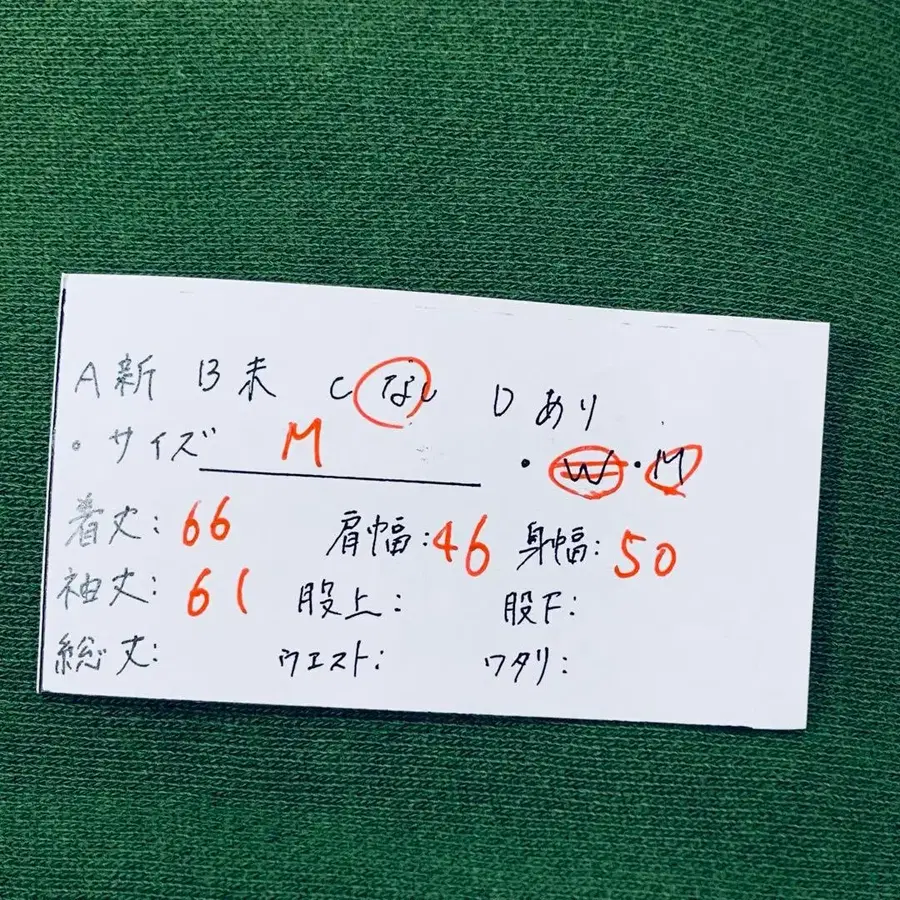 A新 B未 Cなし Dあり
・サイズ M ・W・M
着丈:66 肩幅:46 身幅:50
袖丈:61 股上: 股下:
総丈: ウエスト: ワタリ: